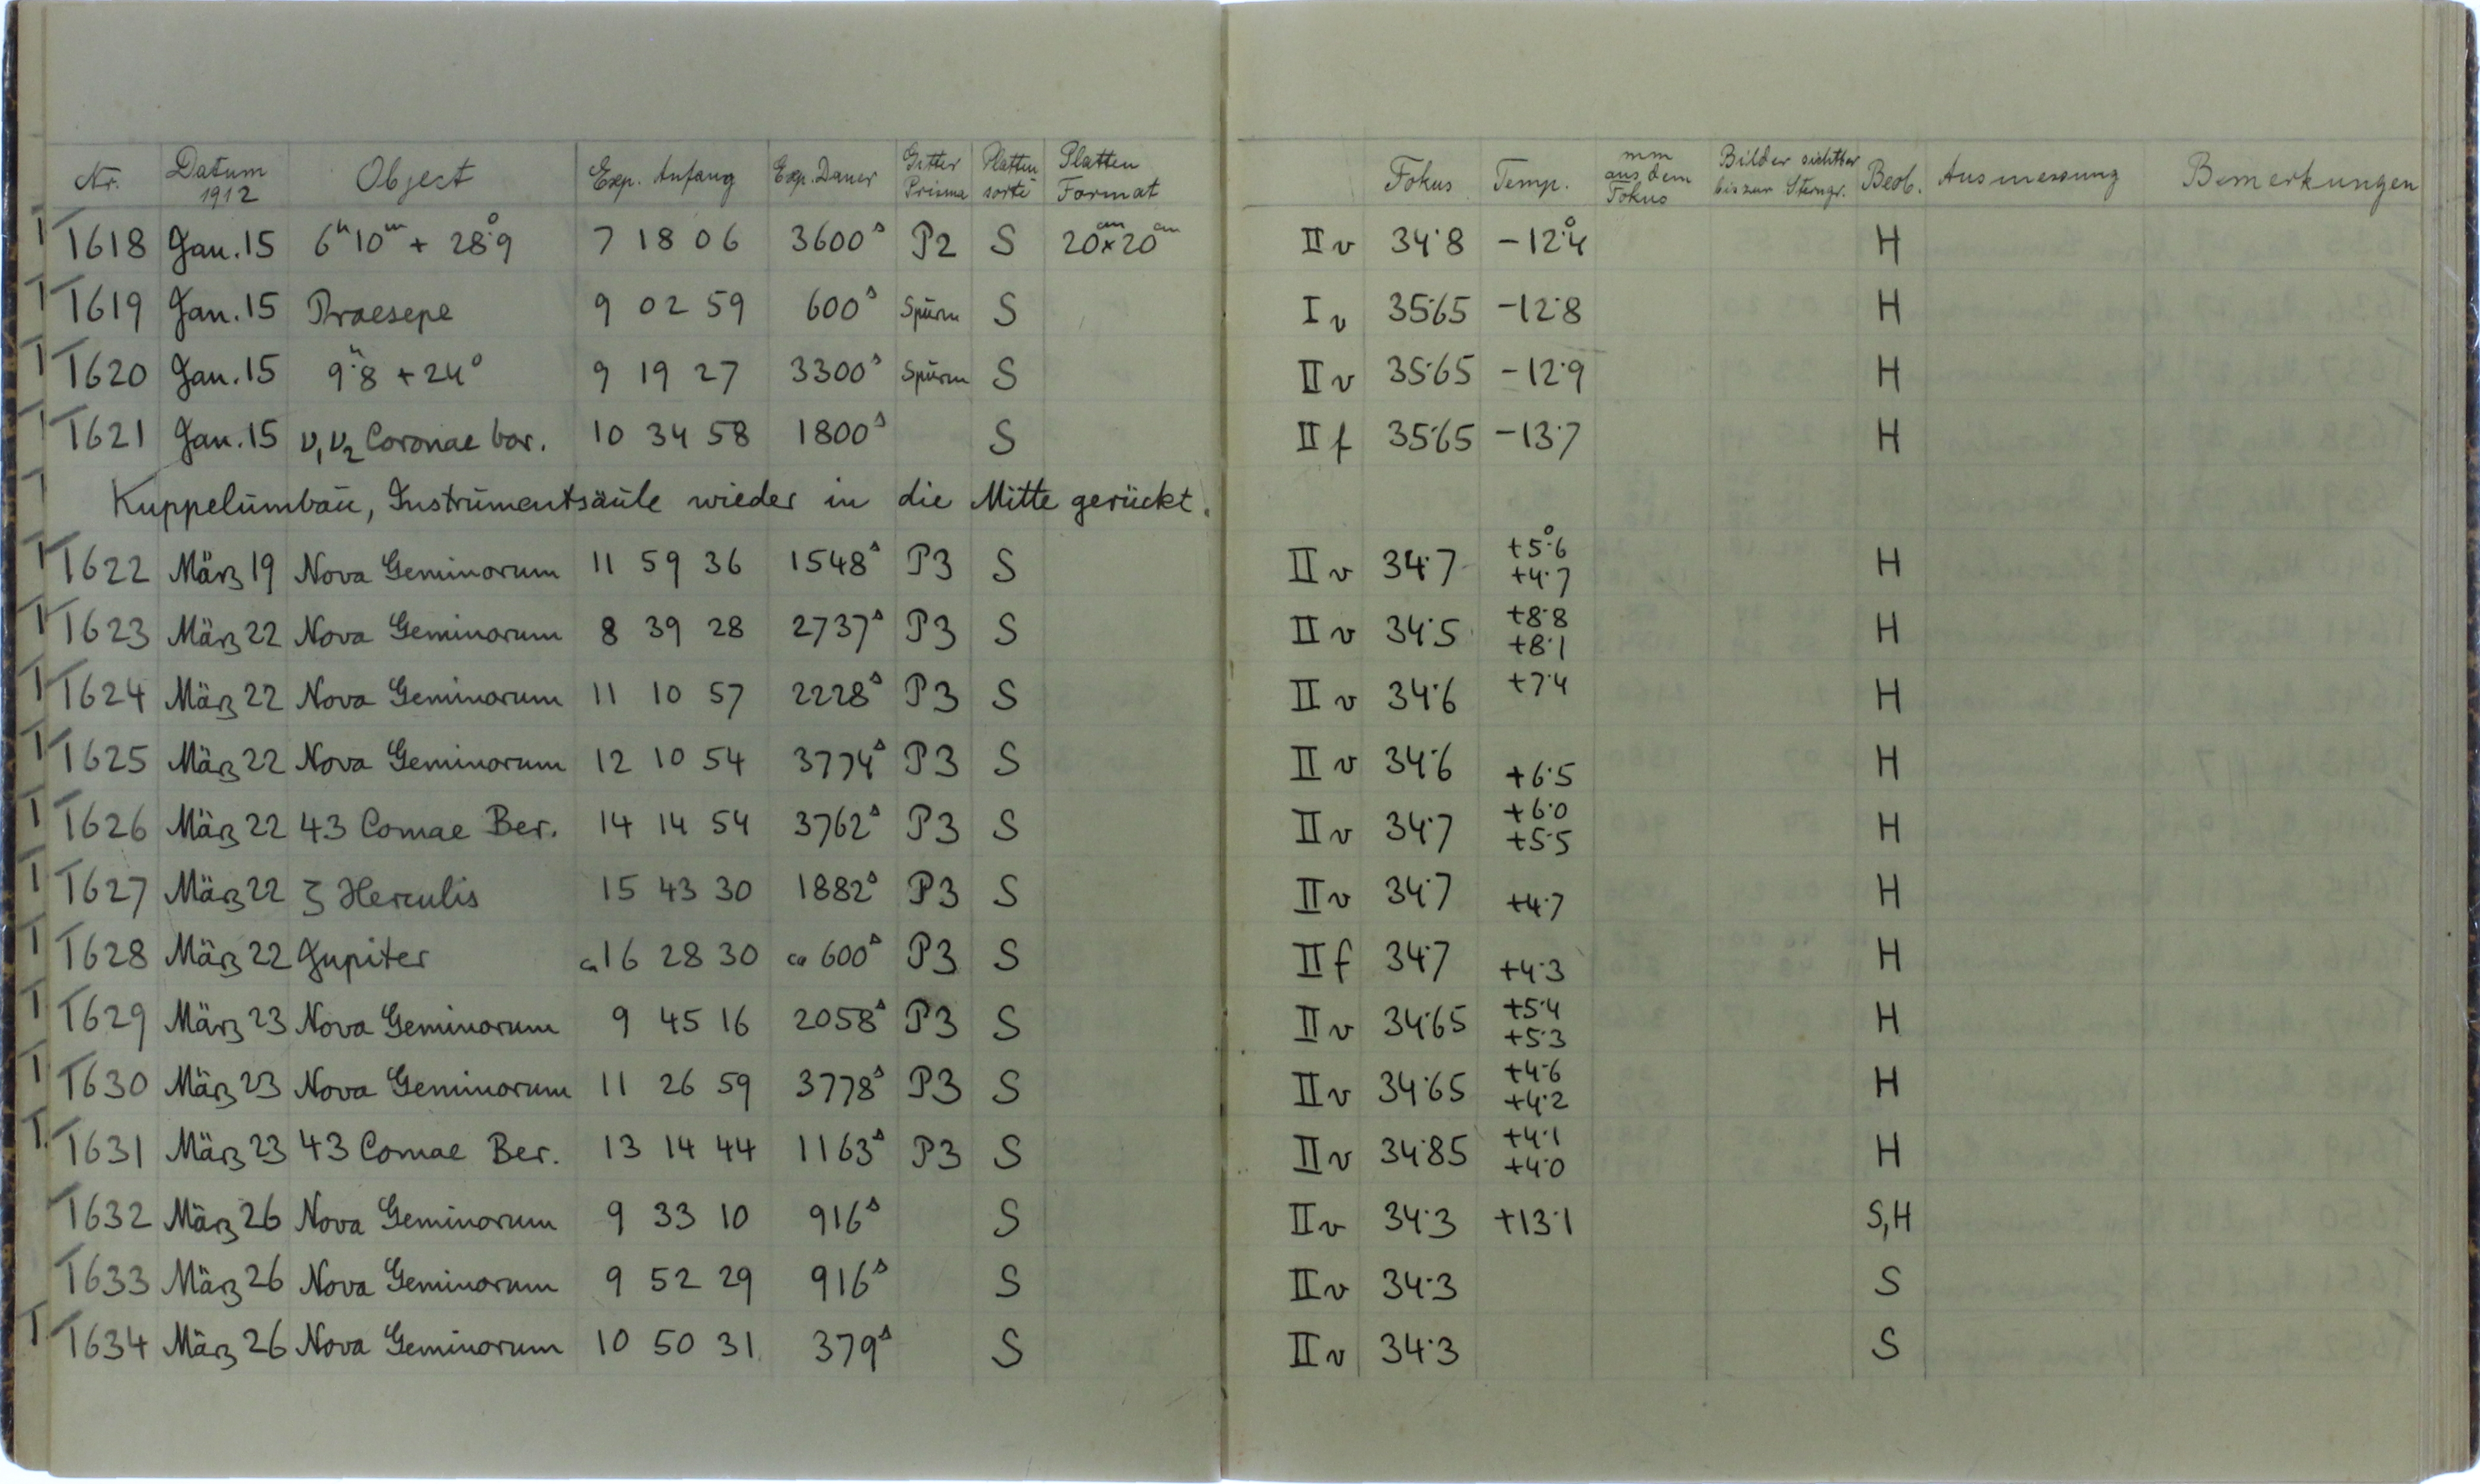 Nr. Datum 1912 Object Exp. Anfang Exp. Dauer Gitter Prisma Platten sorte Platten Format Fokus Temp. mm aus dem Fokus Bilder sichtbar bis zur Sterngr. Beob. Ausmessung Bemerkungen
T618 Jan. 15 6ʰ10ᵐ + 28°.9 7 18 06 3600ˢ P2 S 20ᶜᵐ×20ᶜᵐ II v 34.8 -12°.4 H
T619 Jan. 15 Praesepe 9 02 59 600ˢ Spūrm S I v 35.65 -12.8 H
T620 Jan. 15 9ʰ.8 + 24° 9 19 27 3300ˢ Spūrm S II v 35.65 -12.9 H
T621 Jan. 15 ν₁ν₂ Coronae bor. 10 34 58 1800ˢ S II f 35.65 -13.7 H
Kuppelumbau, Instrumentsäule wieder in die Mitte gerückt.
T622 März 19 Nova Geminorum 11 59 36 1548ˢ P3 S II v 34.7 +5°.6 +4.7 H
T623 März 22 Nova Geminorum 8 39 28 2737ˢ P3 S II v 34.5 +8.8 +8.1 H
T624 März 22 Nova Geminorum 11 10 57 2228ˢ P3 S II v 34.6 +7.4 H
T625 März 22 Nova Geminorum 12 10 54 3774ˢ P3 S II v 34.6 +6.5 H
T626 März 22 43 Comae Ber. 14 14 54 3762ˢ P3 S II v 34.7 +6.0 +5.5 H
T627 März 22 ζ Herculis 15 43 30 1882ˢ P3 S II v 34.7 +4.7 H
T628 März 22 Jupiter ca 16 28 30 ca 600ˢ P3 S II f 34.7 +4.3 H
T629 März 23 Nova Geminorum 9 45 16 2058ˢ P3 S II v 34.65 +5.4 +5.3 H
T630 März 23 Nova Geminorum 11 26 59 3778ˢ P3 S II v 34.65 +4.6 +4.2 H
T631 März 23 43 Comae Ber. 13 14 44 1163ˢ P3 S II v 34.85 +4.1 +4.0 H
T632 März 26 Nova Geminorum 9 33 10 916ˢ S II v 34.3 +13.1 S,H
T633 März 26 Nova Geminorum 9 52 29 916ˢ S II v 34.3 S
T634 März 26 Nova Geminorum 10 50 31 379ˢ S II v 34.3 S